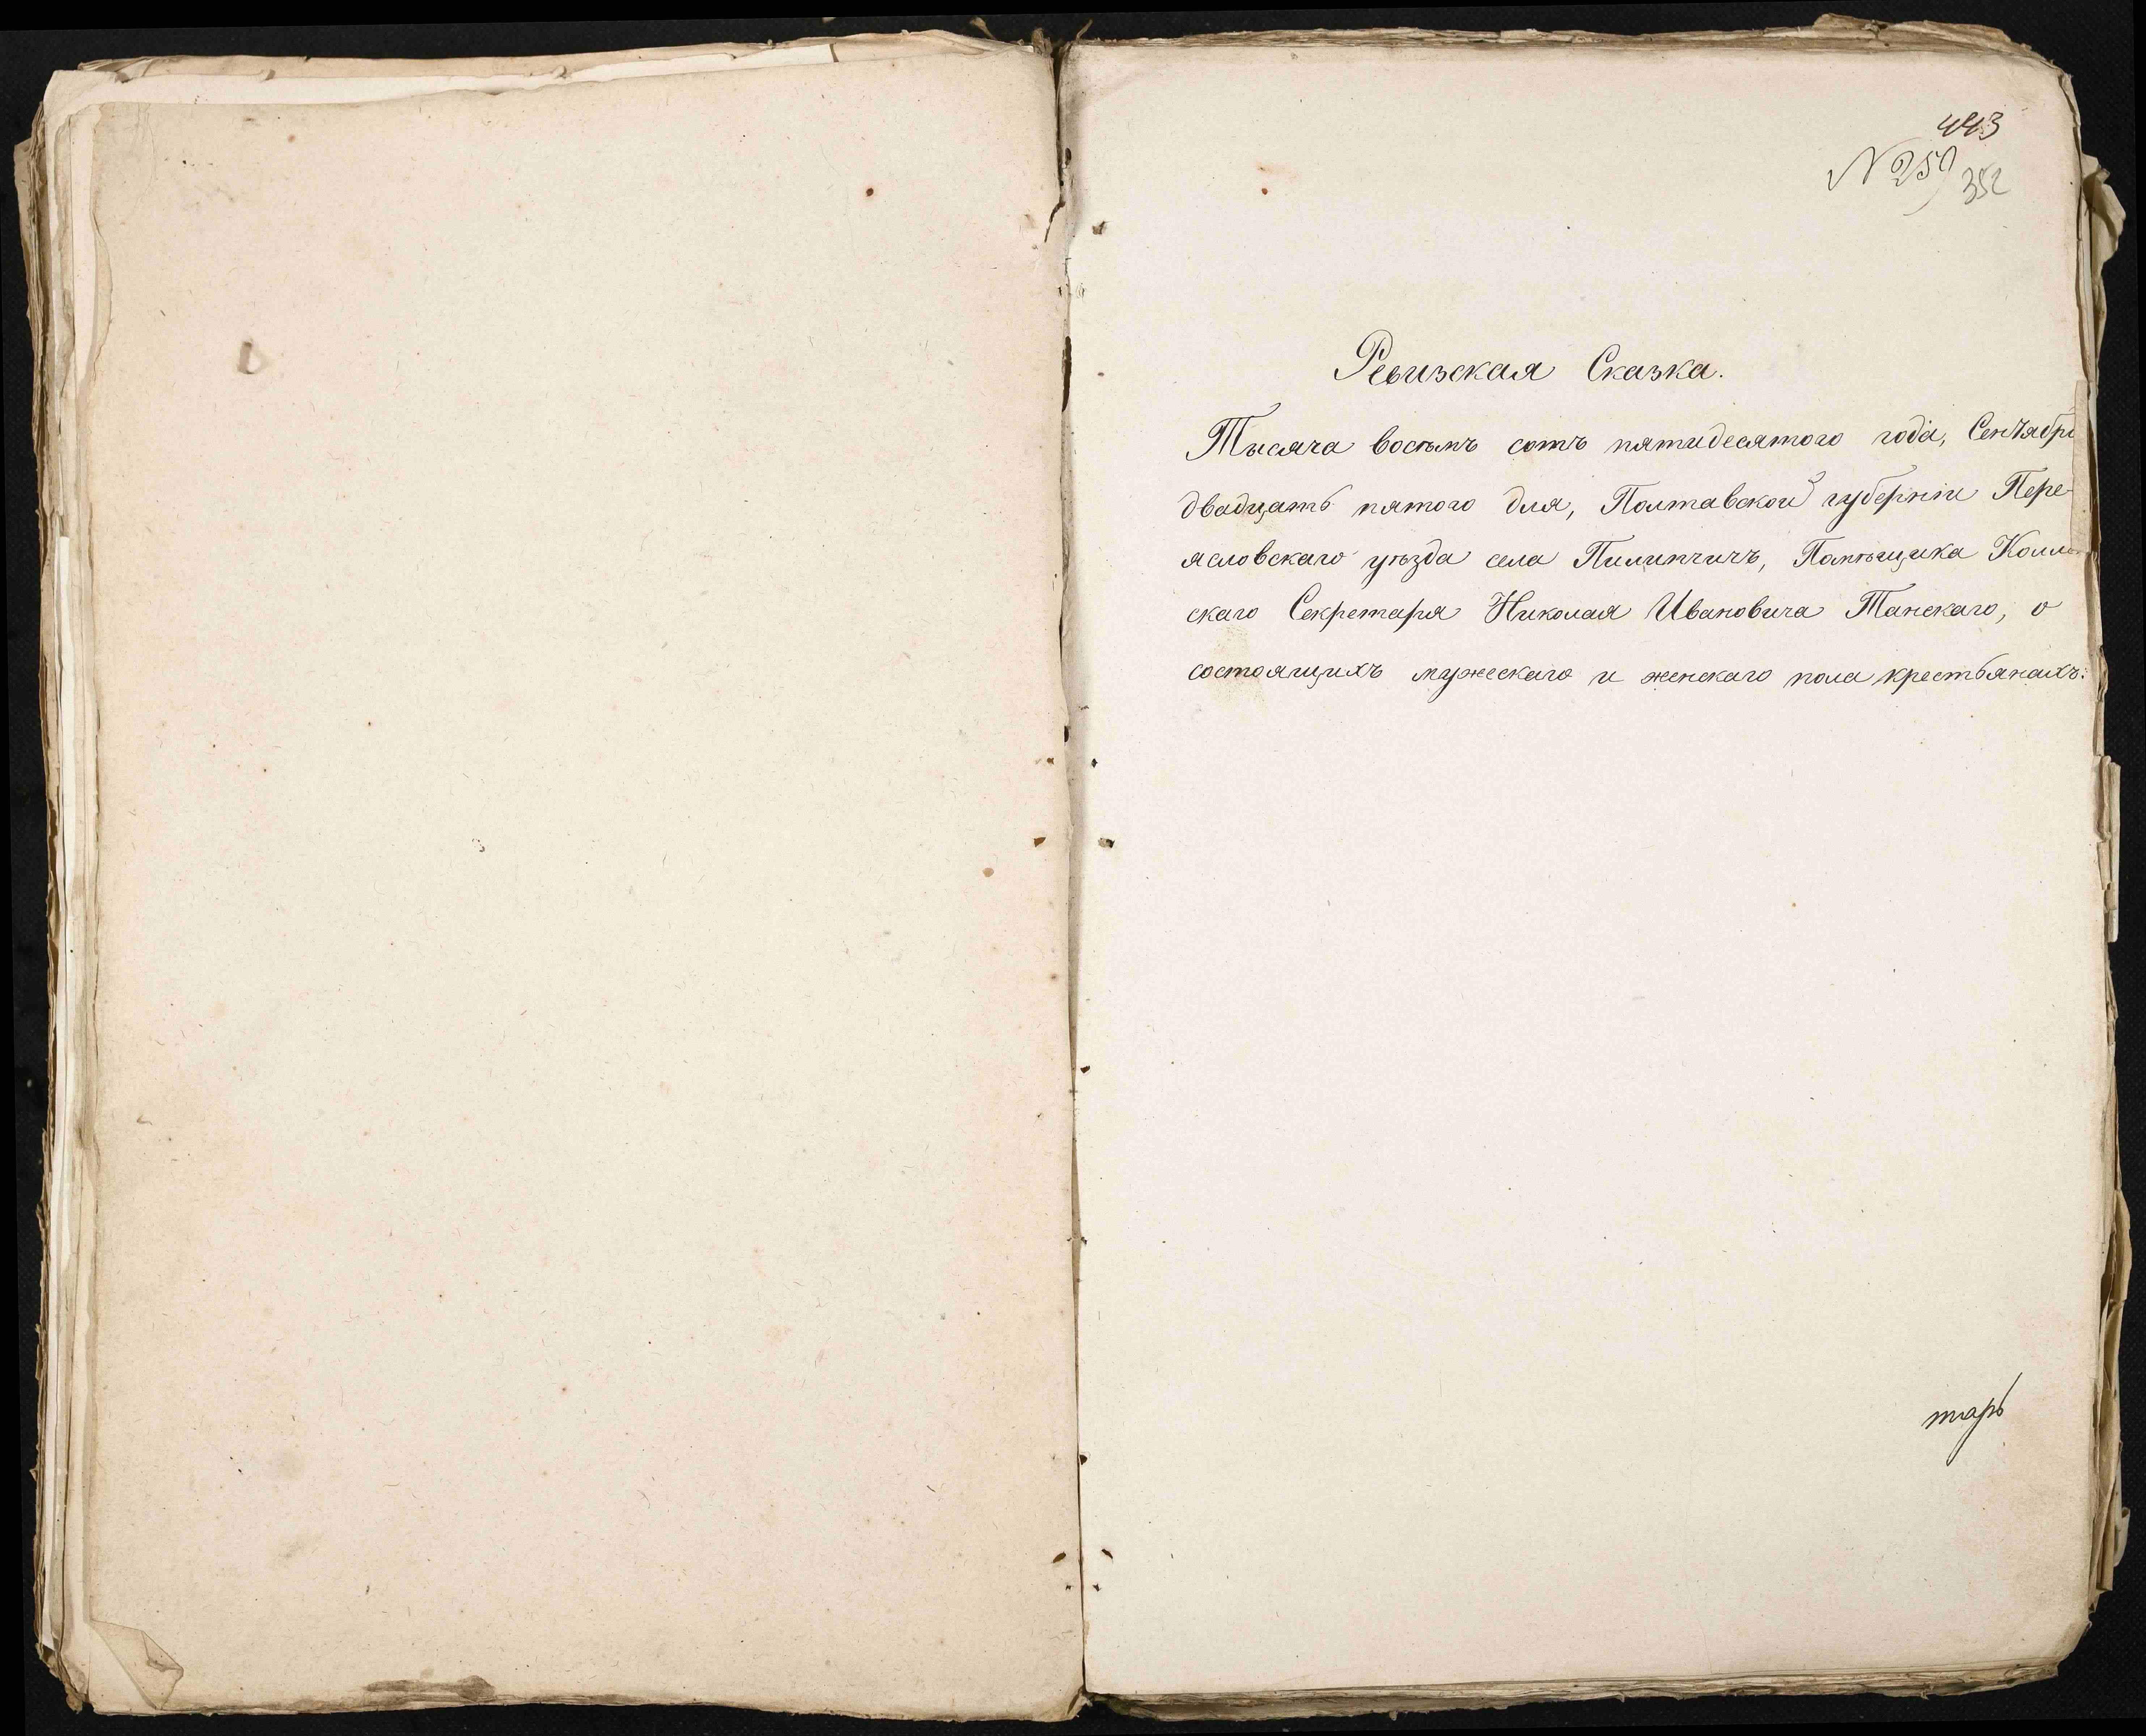 443
N 259
352
Ревизская Сказка.
Тысяча восемь сотъ пятидесятого года, Сентября
двадцать пятого дня, Полтавской губерніи Пере-
ясловскаго уѣзда села Пилипчичъ, Помѣщика Колле-
скаго Секретаря Николая Ивановича Танскаго, о
состоящихъ мужескаго и женскаго пола крестьянахъ:
тарь